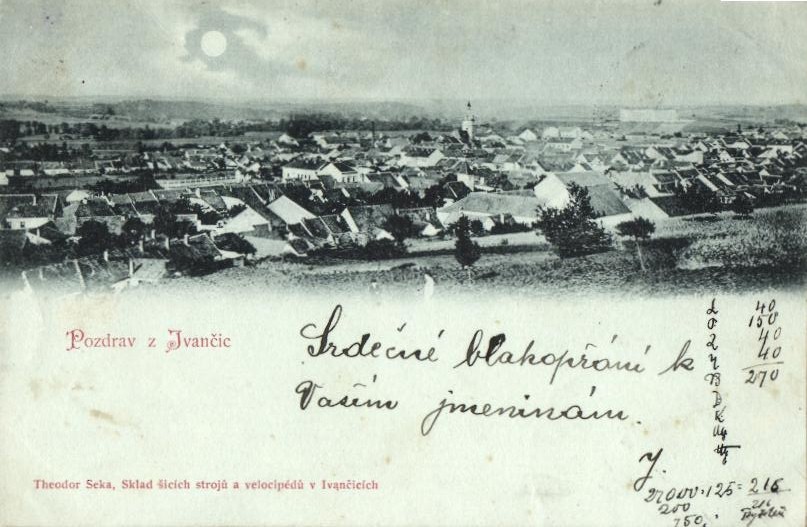 Pozdrav z Ivančic
Srdečné blahopřání k
Vašim jmeninám.
J.
40
150
40
40
270
27000:125=216
200
750
216
Theodor Seka, Sklad šicích strojů a velocipédů v Ivančicích